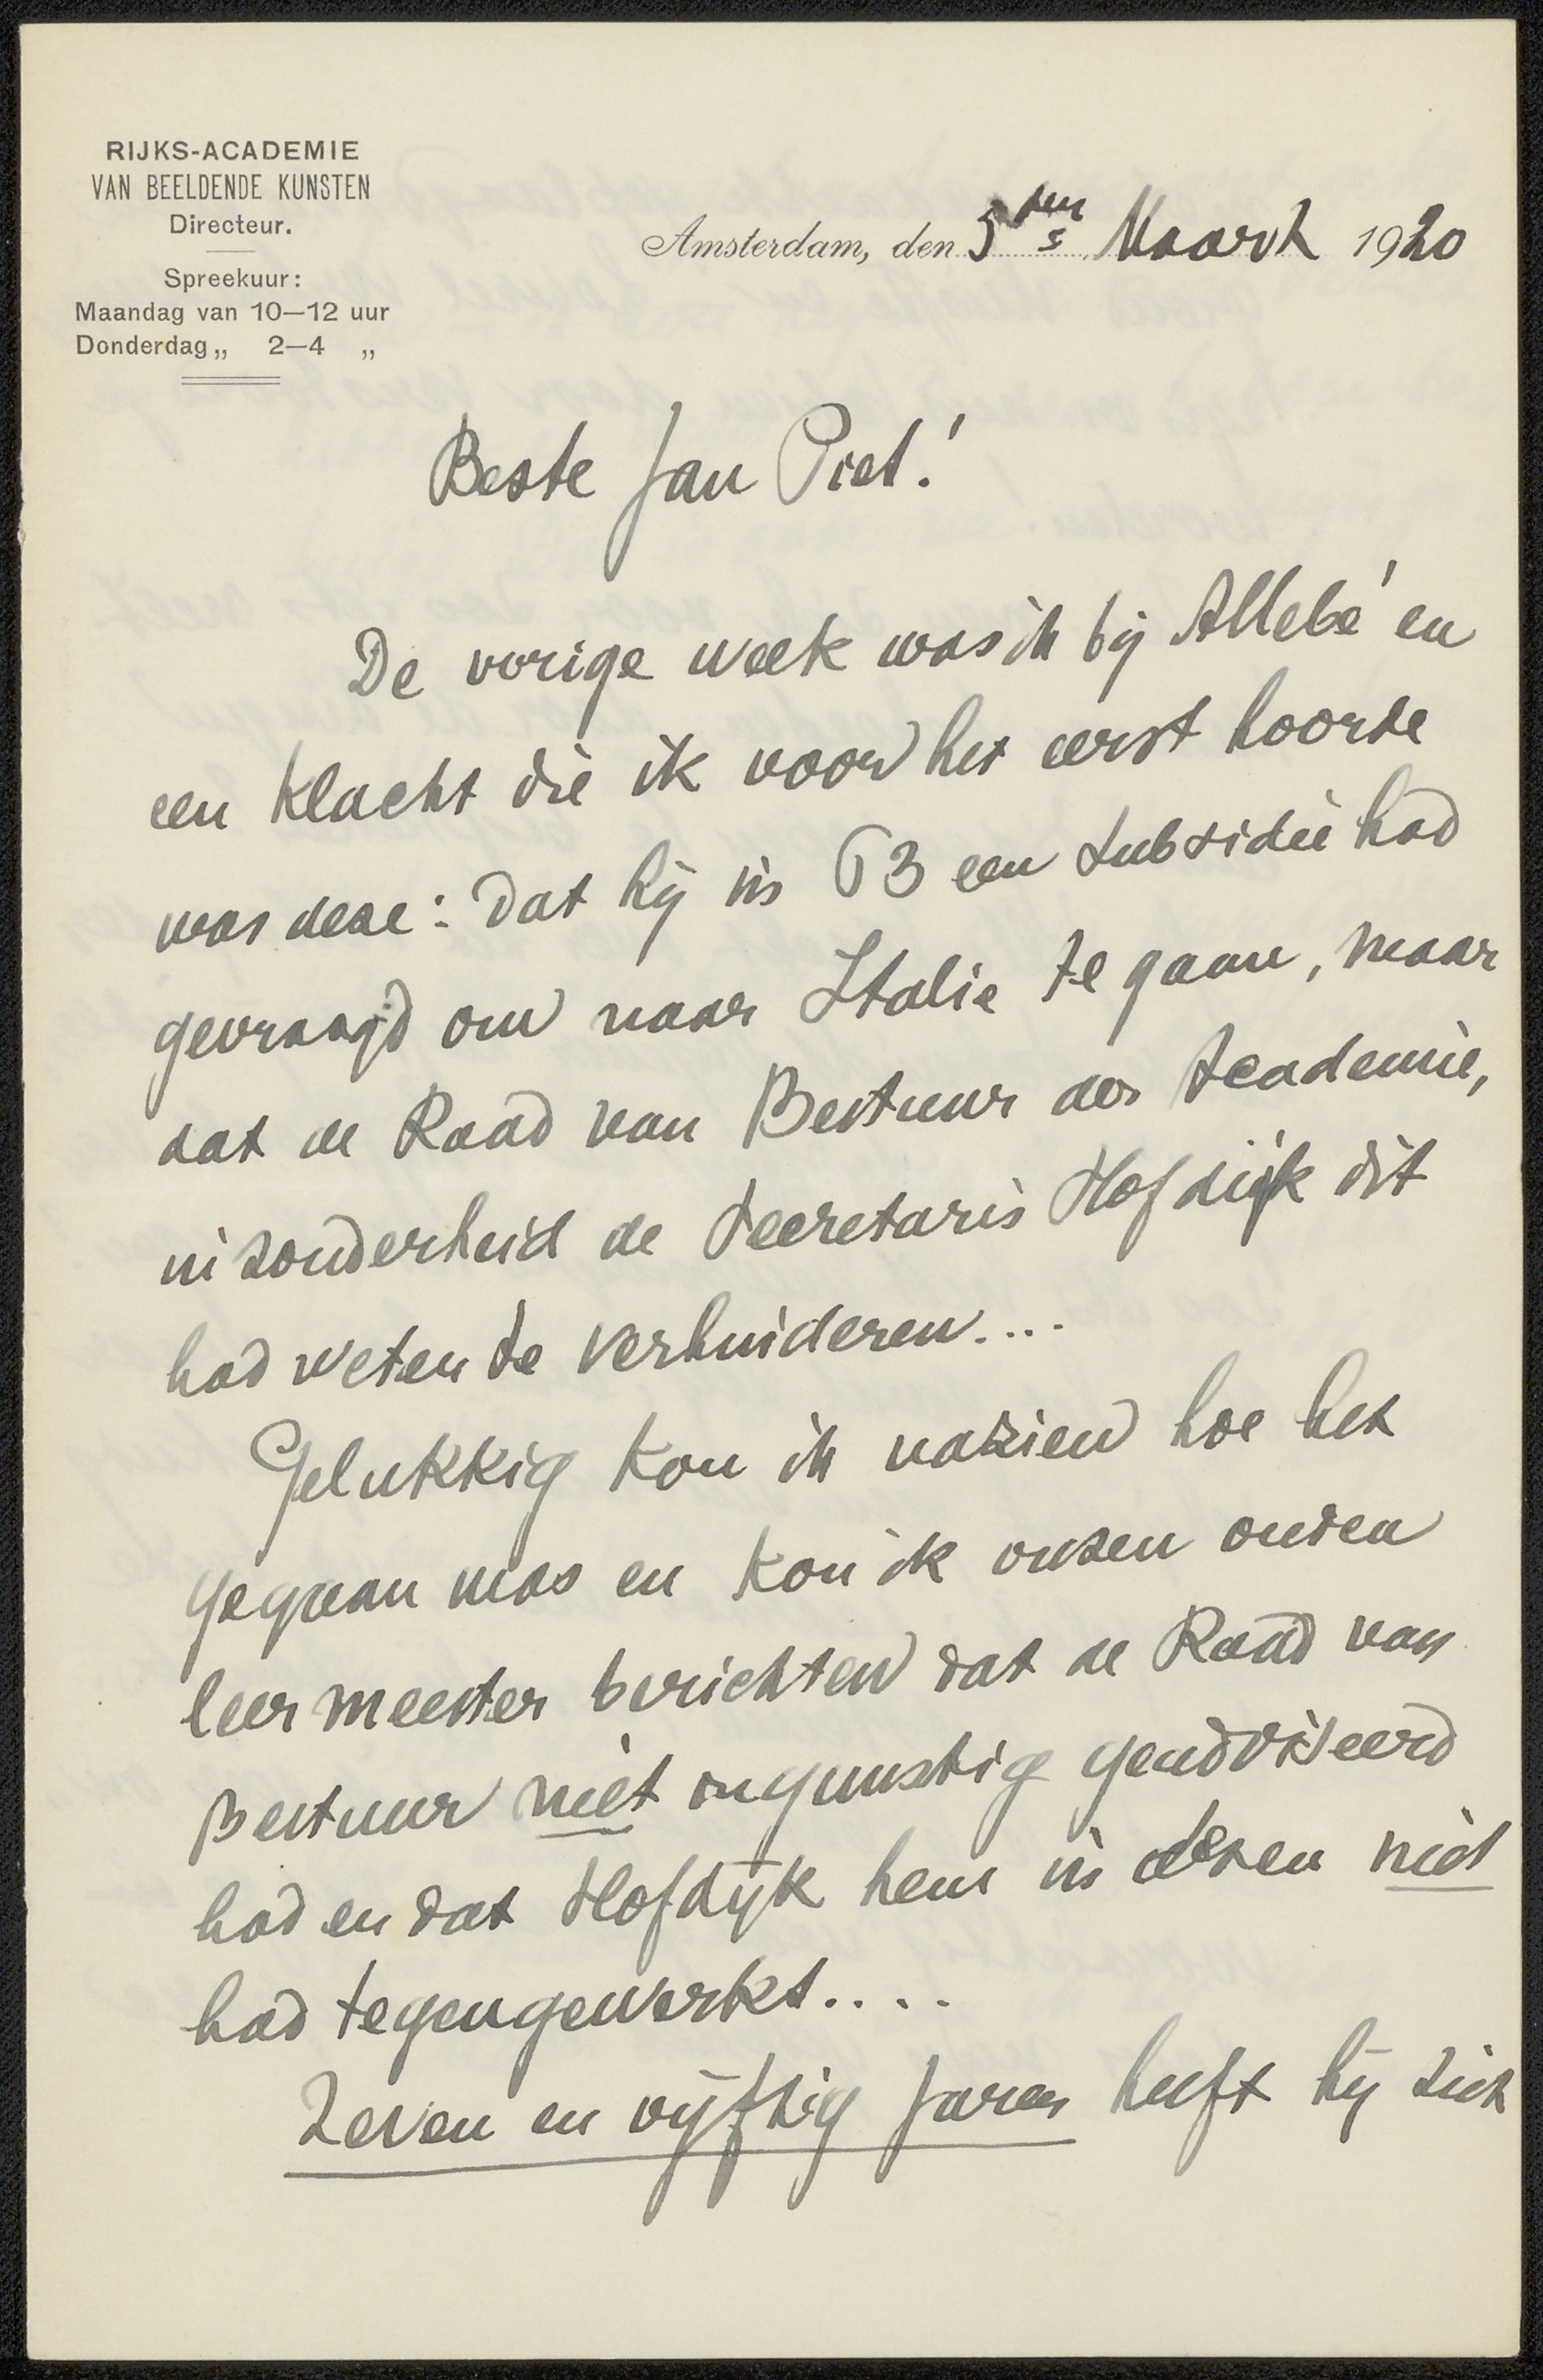 RIJKS-ACADEMIE
VAN BEELDENDE KUNSTEN
Directeur.
Spreekuur:
Maandag van 10—12 uur
Donderdag „ 2—4 „
Amsterdam, den 5den Maart 1920
Beste Jan Piet!
De vorige week was ik bij Allebé en
een klacht die ik voor het eerst hoorde
was deze: dat hij in 63 een subsidie had
gevraagd om naar Italie te gaan, maar
dat de Raad van Bestuur der Academie,
inzonderheid de Secretaris Hofdijk dit
had weten te verhinderen....
Gelukkig kon ik nazien hoe het
gegaan was en kon ik onzen ouden
leermeester berichten dat de Raad van
Bestuur niet ongunstig geadviseerd
had en dat Hofdijk hem in dezen niet
had tegengewerkt....
Zeven en vijftig jaren heeft hij zich